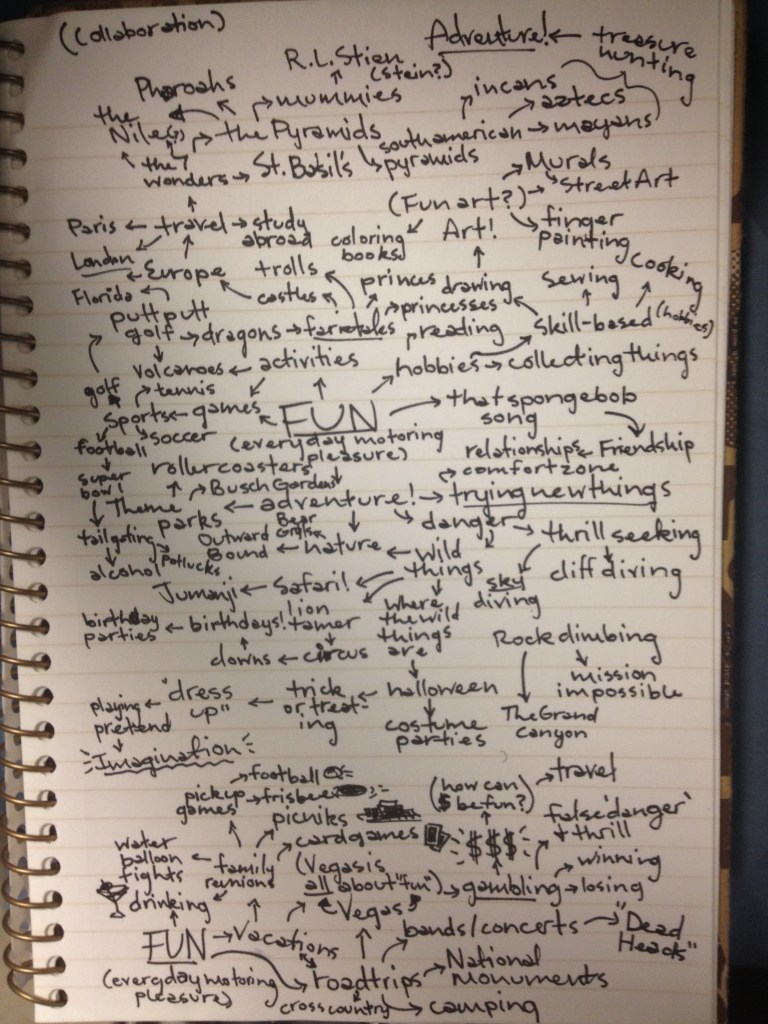 (Collaboration)
R.L. Stien
(Stein?)
Adventure! ← treasure
hunting
Pharoahs
mummies
incans
aztecs
the
Nile(?)
the Pyramids
southamerican → mayans
pyramids
the 7
wonders → St. Basil's
Murals
Street Art
(Fun art?)
finger
painting
Paris ← travel → study
abroad
coloring
books
Art!
London
Europe
trolls
castles
princes
drawing
sewing
Cooking
Florida
putt putt
golf → dragons → fairietales
princesses
reading
skill-based (hobbies)
volcanoes ← activities
hobbies → collecting things
golf
tennis
sports ← games
FUN
that spongebob
song
football
soccer
(everyday motoring
pleasure)
relationships ← Friendship
super
bowl
rollercoasters
Busch Gardens
comfort zone
Theme
parks
adventure! → trying new things
tailgating
Potlucks
alcohol
Outward
Bound
Bear
Grylls
nature ← wild
things
danger → thrill seeking
sky
diving
cliff diving
Jumanji ← Safari!
lion
tamer
where
the wild
things
are
birthday
parties ← birthdays!
clowns ← circus
Rock climbing
mission
impossible
The Grand
Canyon
playing
pretend
"dress
up"
trick
or treat-
ing
halloween
costume
parties
Imagination
football
pickup
games
frisbee
picniks
card games
(how can
$ be fun?)
travel
$$$
false 'danger'
thrill
water
balloon
fights
family
reunions
(Vegas is
all about "fun") → gambling → losing
winning
drinking
Vegas
FUN → Vacations
bands/concerts → "Dead
Heads"
(everyday motoring
pleasure)
roadtrips → National
Monuments
cross country → camping